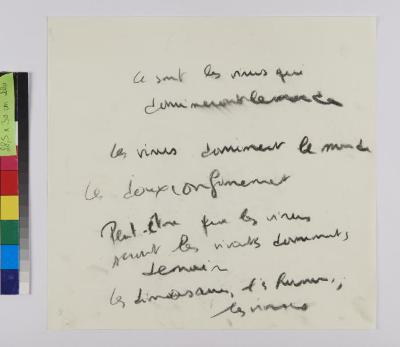 ce sont les virus qui
domineront le monde
les virus dominent le monde
les doux confinement
Peut-être que les virus
seront les vivants dominants,
demain
les dinosaures, les humains,
les virus